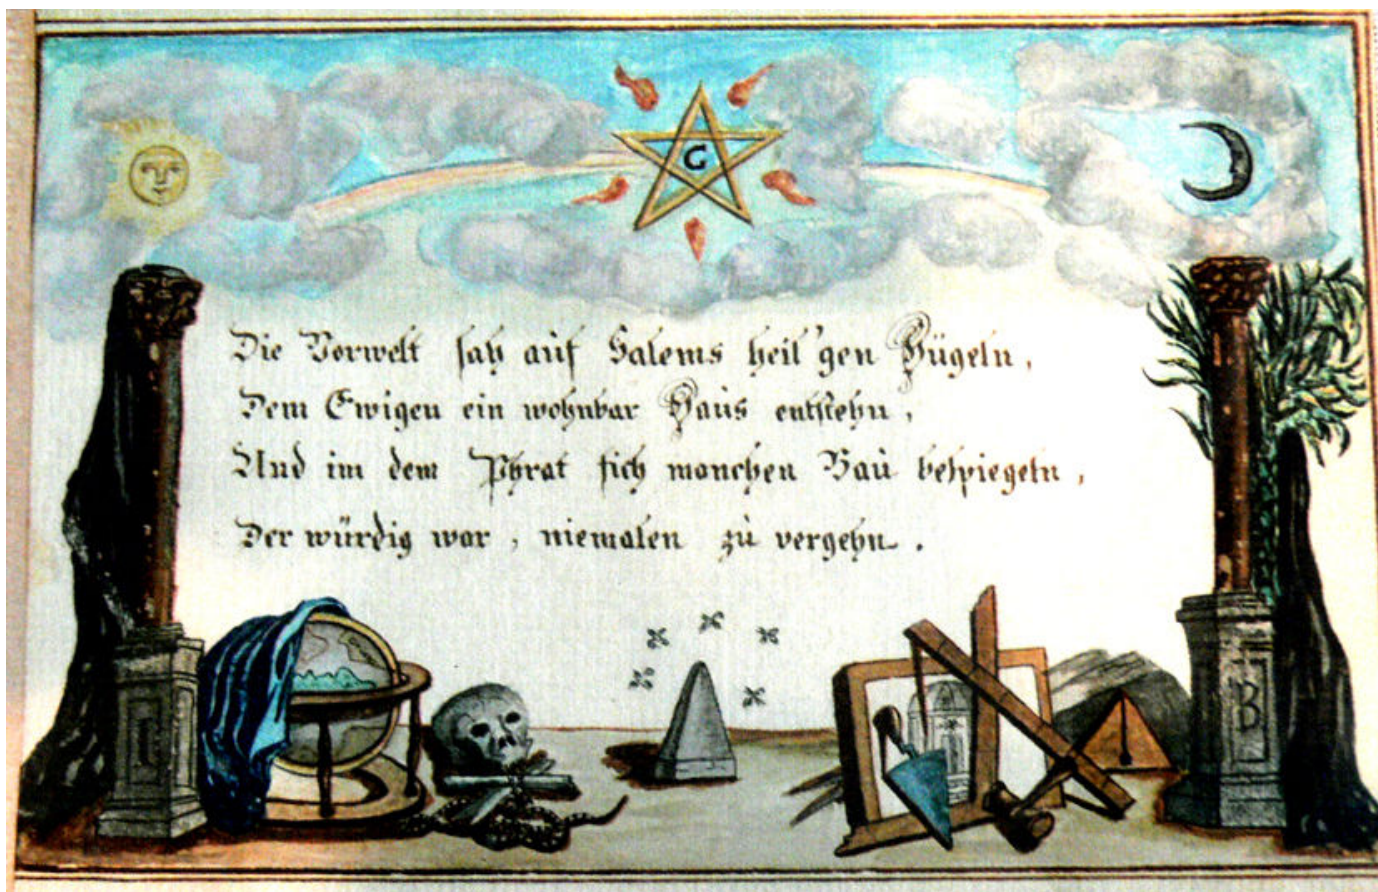 G
Die Vorwelt sah auf Salems heil'gen Hügeln,
Dem Ewigen ein wohnbar Haus entstehn,
Und im dem Phrat sich manchen Bau bespiegeln,
Der würdig war, niemalen zu vergehn.
I
B